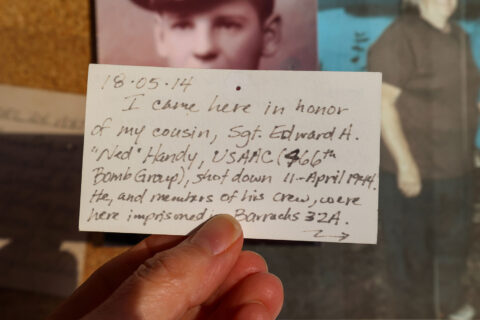 18·05·14
I came here in honor
of my cousin, Sgt. Edward H.
"Ned" Handy, USAAC (466th
Bomb Group), shot down 11-April 1944.
He, and members of his crew, were
here imprisoned in Barracks 32A.